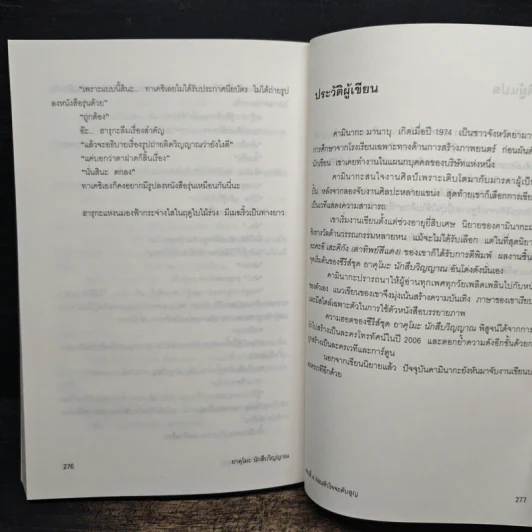 "เพราะแบบนี้สินะ... ทาเคชิเลยไม่ได้รับประกาศนียบัตร ไม่ได้ถ่ายรูป
ลงหนังสือรุ่นด้วย"
"ถูกต้อง"
อ๊ะ... ฮารุกะลืมเรื่องสำคัญ
"แล้วจะอธิบายเรื่องรูปถ่ายติดวิญญาณว่ายังไงดี"
"แค่บอกว่าตาฝาดก็สิ้นเรื่อง"
"นั่นสินะ ตกลง"
ทาเคชิเองก็คงอยากมีรูปลงหนังสือรุ่นเหมือนกันนี่นะ
ฮารุกะแหงนมองฟ้ากระจ่างใสในฤดูใบไม้ร่วง มีเมฆริ้วเป็นทางยาว
276
ยาคุโมะ นักสืบวิญญาณ
ประวัติผู้เขียน
คามินากะ มานาบุ เกิดเมื่อปี 1974 เป็นชาวจังหวัดยามา
การศึกษาจากโรงเรียนเฉพาะทางด้านการสร้างภาพยนตร์ ก่อนผันตั
นักเขียน เขาเคยทำงานในแผนกบุคคลของบริษัทแห่งหนึ่ง
คามินากะสนใจงานศิลป์เพราะเติบโตมากับมารดาผู้เป็
หลังจากลองจับงานศิลปะหลายแขนง สุดท้ายเขาก็เลือกการเขีย
เป็นเวทีแสดงความสามารถ
เขาเริ่มงานเขียนตั้งแต่ช่วงอายุยี่สิบเศษ นิยายของคามินากะผ่
ชิงรางวัลด้านวรรณกรรมหลายหน แม้จะไม่ได้รับเลือก แต่ในที่สุดนิยา
(ตาทิพย์สีแดง) ของเขาก็ได้รับการตีพิมพ์ ผลงานชิ้น
จุดเริ่มต้นของซีรีส์ชุด ยาคุโมะ นักสืบวิญญาณ อันโด่งดังนั่นเอง
คามินากะปรารถนาให้ผู้อ่านทุกเพศทุกวัยเพลิดเพลินไปกับหนั
ของตัวเอง แนวเขียนของเขาจึงมุ่งเน้นสร้างความบันเทิง ภาษาของเขาเรียบ
และมีสไตล์เฉพาะตัวในการใช้ตัวหนังสือบรรยายภาพ
ความฮอตของซีรีส์ชุด ยาคุโมะ นักสืบวิญญาณ พิสูจน์ได้จากการ
นำไปสร้างเป็นละครโทรทัศน์ในปี 2006 และตอกย้ำความดังอีกขั้นด้วยก
ถูกสร้างเป็นละครเวทีและการ์ตูน
นอกจากเขียนนิยายแล้ว ปัจจุบันคามินากะยังหันมาจับงานเขียนบ
ละครเวทีอีกด้วย
277